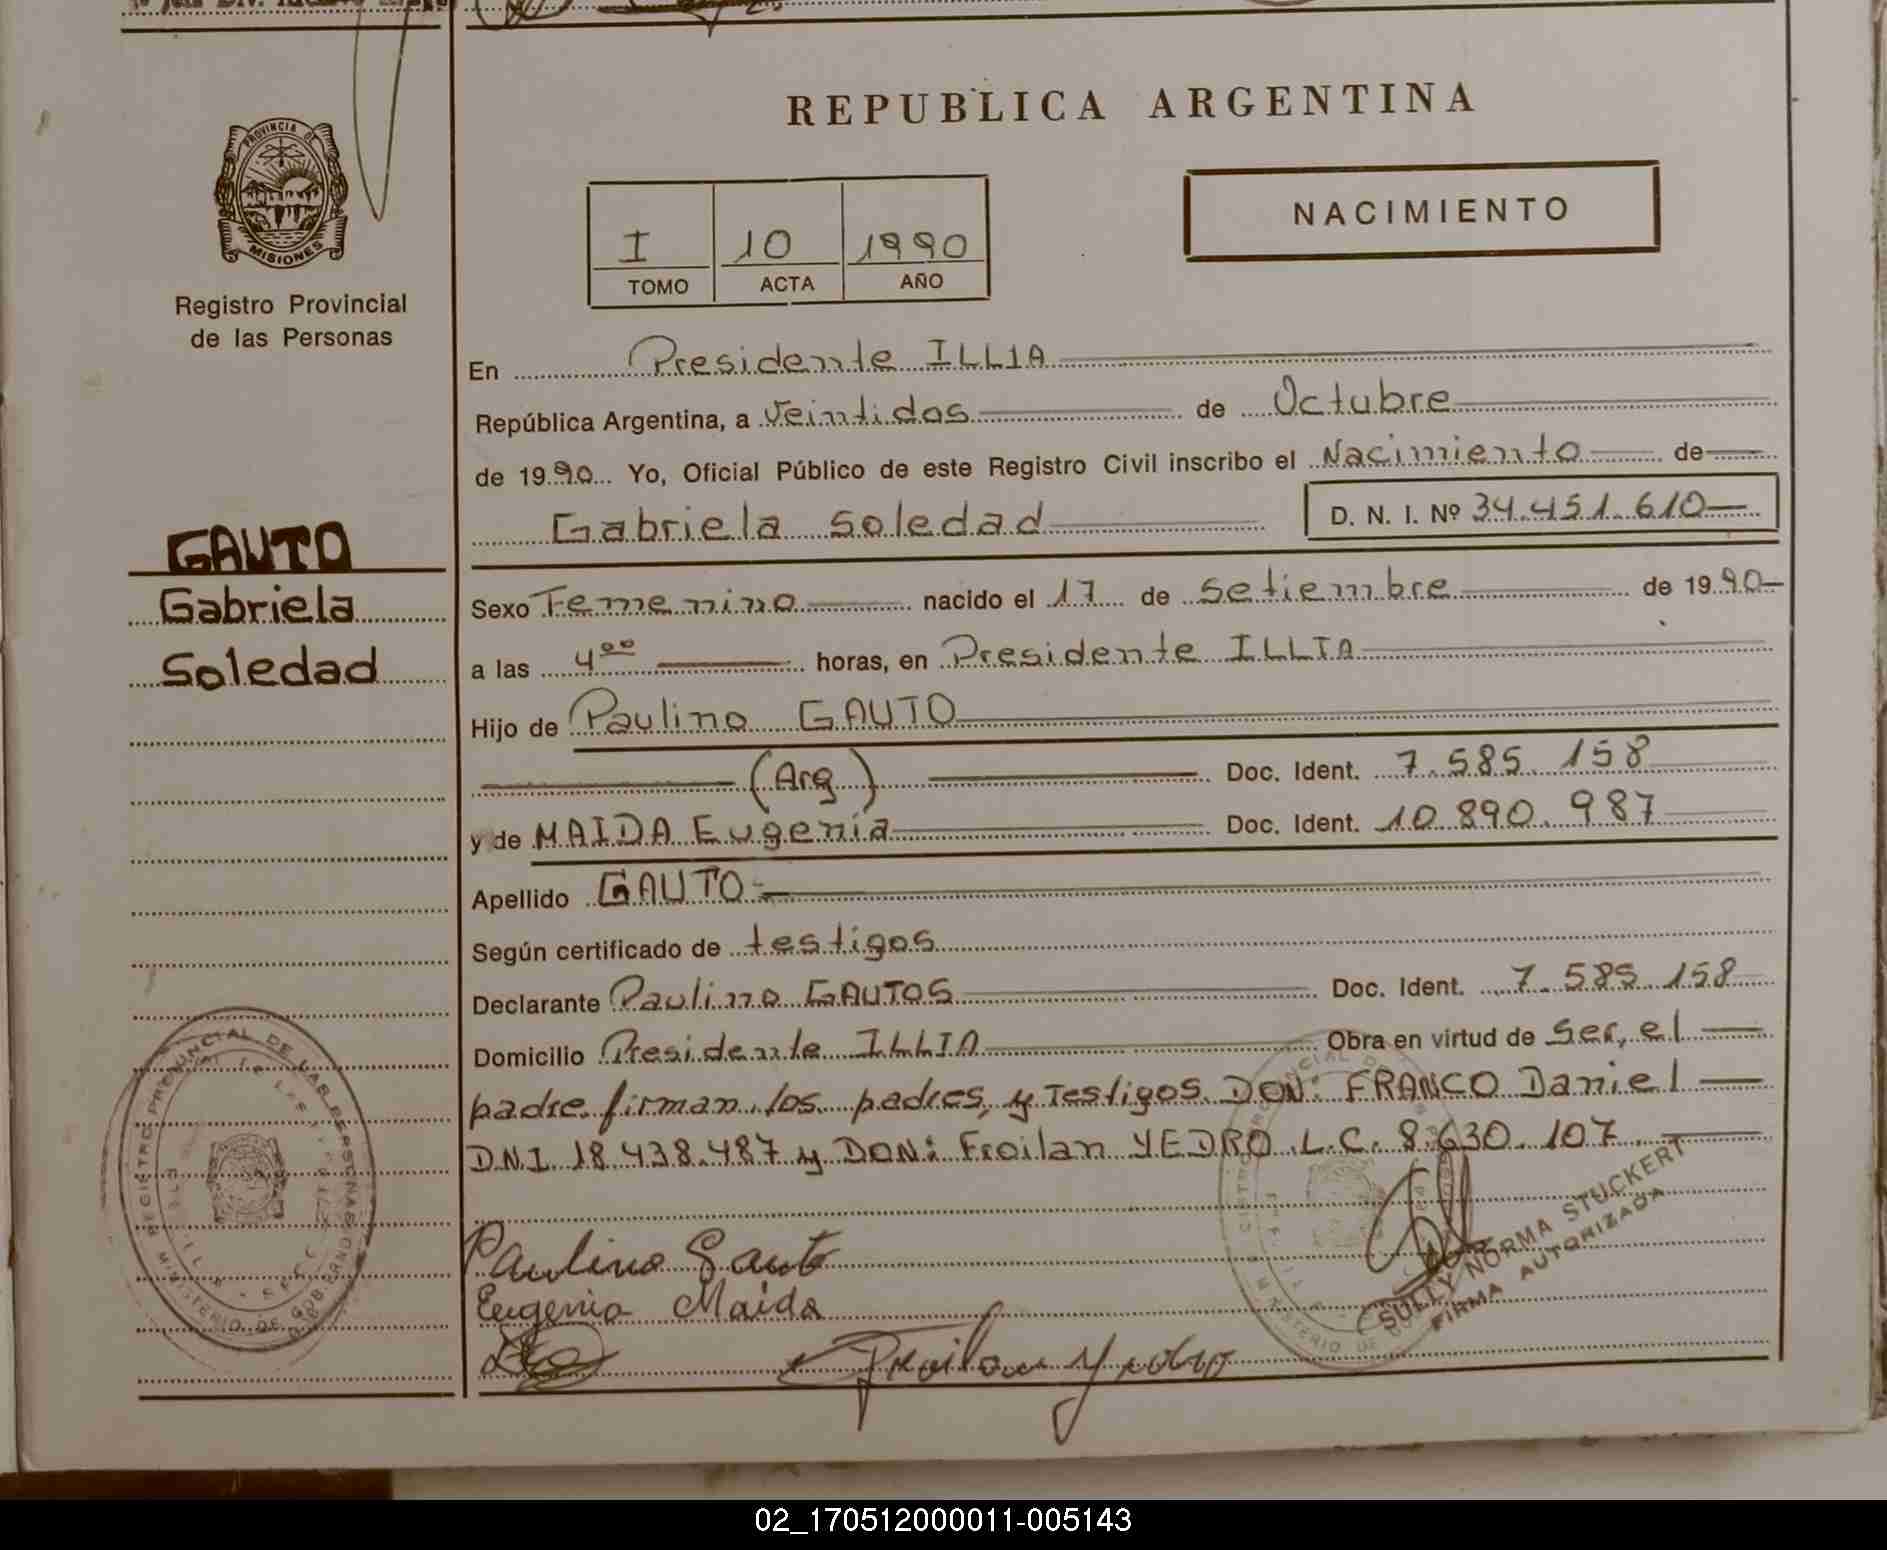 REPUBLICA ARGENTINA
PROVINCIA DE
MISIONES
Registro Provincial
de las Personas
I 10 1990
TOMO ACTA AÑO
NACIMIENTO
En Presidente ILLIA
República Argentina, a veintidos de Octubre
de 1990 Yo, Oficial Público de este Registro Civil inscribo el Nacimiento de
Gabriela Soledad D. N. I. Nº 34.451.610
GAUTO
Gabriela
Soledad
Sexo Femenino nacido el 17 de Setiembre de 1990
a las 4⁰⁰ horas, en Presidente ILLIA
Hijo de Paulino GAUTO
(Arg) Doc. Ident. 7.585.158
y de MAIDA Eugenia Doc. Ident. 10.890.987
Apellido GAUTO
Según certificado de testigos
Declarante Paulino GAUTOS Doc. Ident. 7.585.158
Domicilio Presidente ILLIA Obra en virtud de Ser, el
padre. firman los padres, y Testigos DON: FRANCO Daniel
D.N.I 18.438.487 y DON: Froilan YEDRO L.C. 8.630.107
Paulino Gauto
Eugenia Maida
Froilan Yedro
SULLY NORMA STUCKERT
FIRMA AUTORIZADA
REGISTRO PROVINCIAL DE LAS PERSONAS
MINISTERIO DE GOBIERNO
02_170512000011-005143